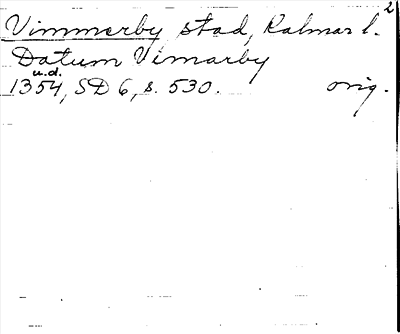 2
Vimmerby stad, Kalmar l.
Datum Vimarby
u.d.
1354, SD 6, s. 530. orig.